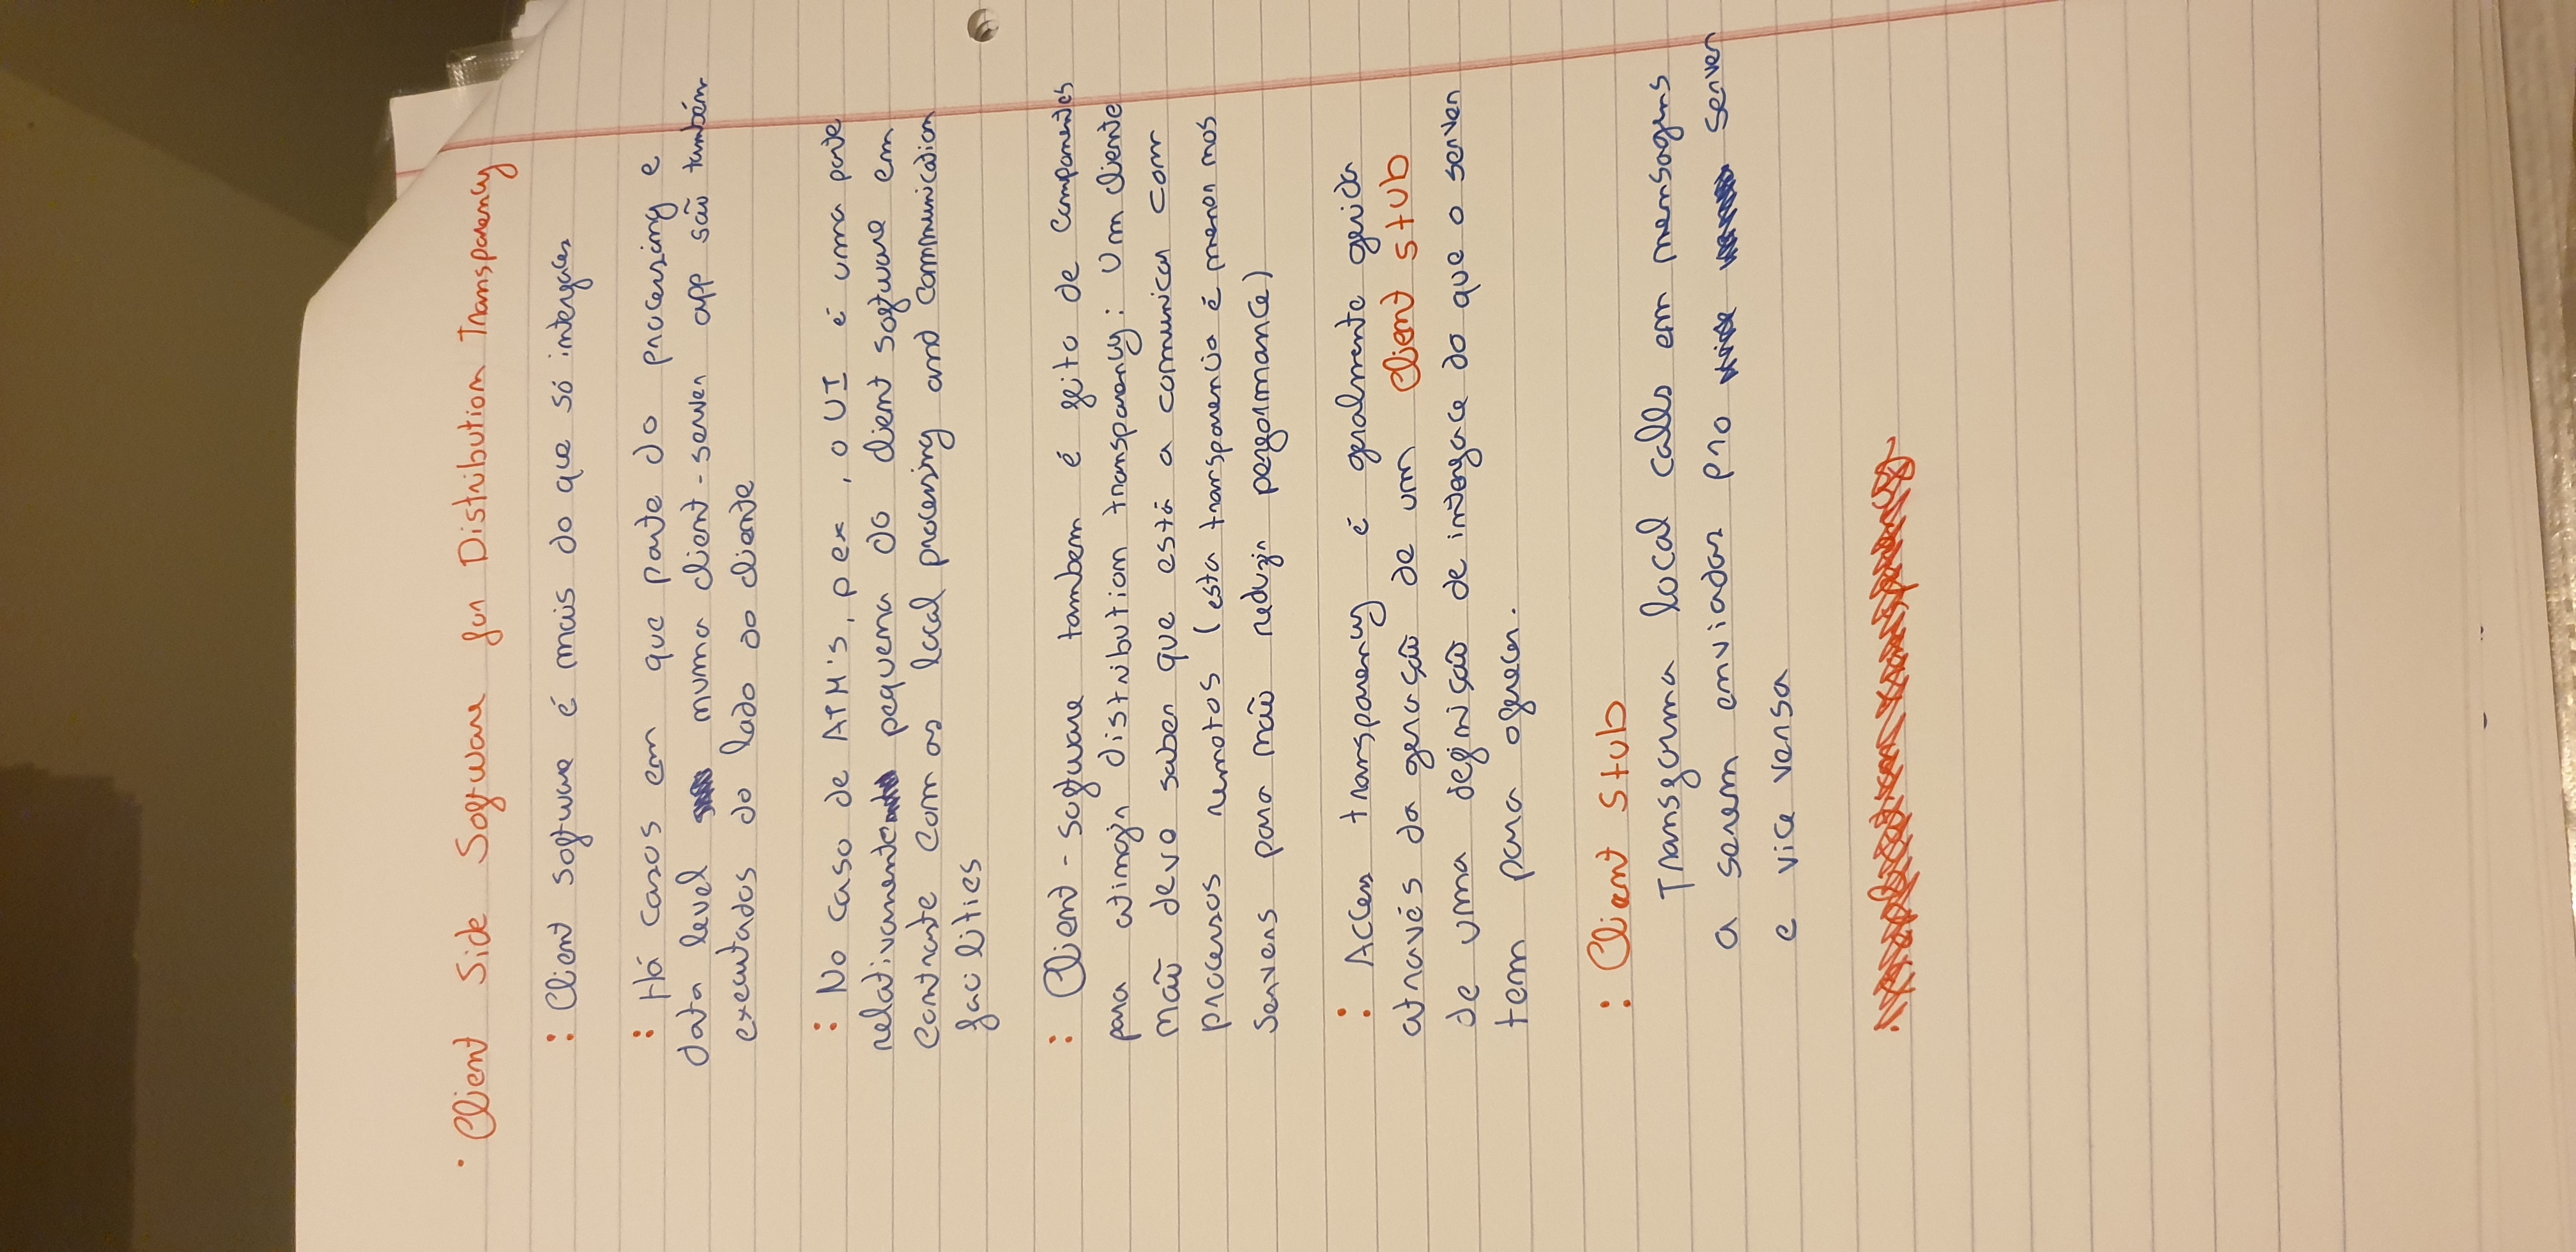 · Client Side Software for Distribution Transparency
: Client software é mais do que só interfaces
: Há casos em que parte do processing e
data level numa client-server app são também
executados do lado do cliente
: No caso de ATM's, p ex, o UI é uma parte
relativamente pequena do client software em
contraste com as local processing and communication
facilities
: Client-software tambem é feito de componentes
para atingir distribution transparency: Um cliente
não deve saber que está a comunicar com
processos remotos (esta transparencia é menor nos
servers para não reduzir performance)
: Access transparency é geralmente gerida
através da geração de um Client stub
de uma definição de interface do que o server
tem para oferecer.
: Client stub
Transforma local calls em mensagens
a serem enviadas pro server
e vice versa